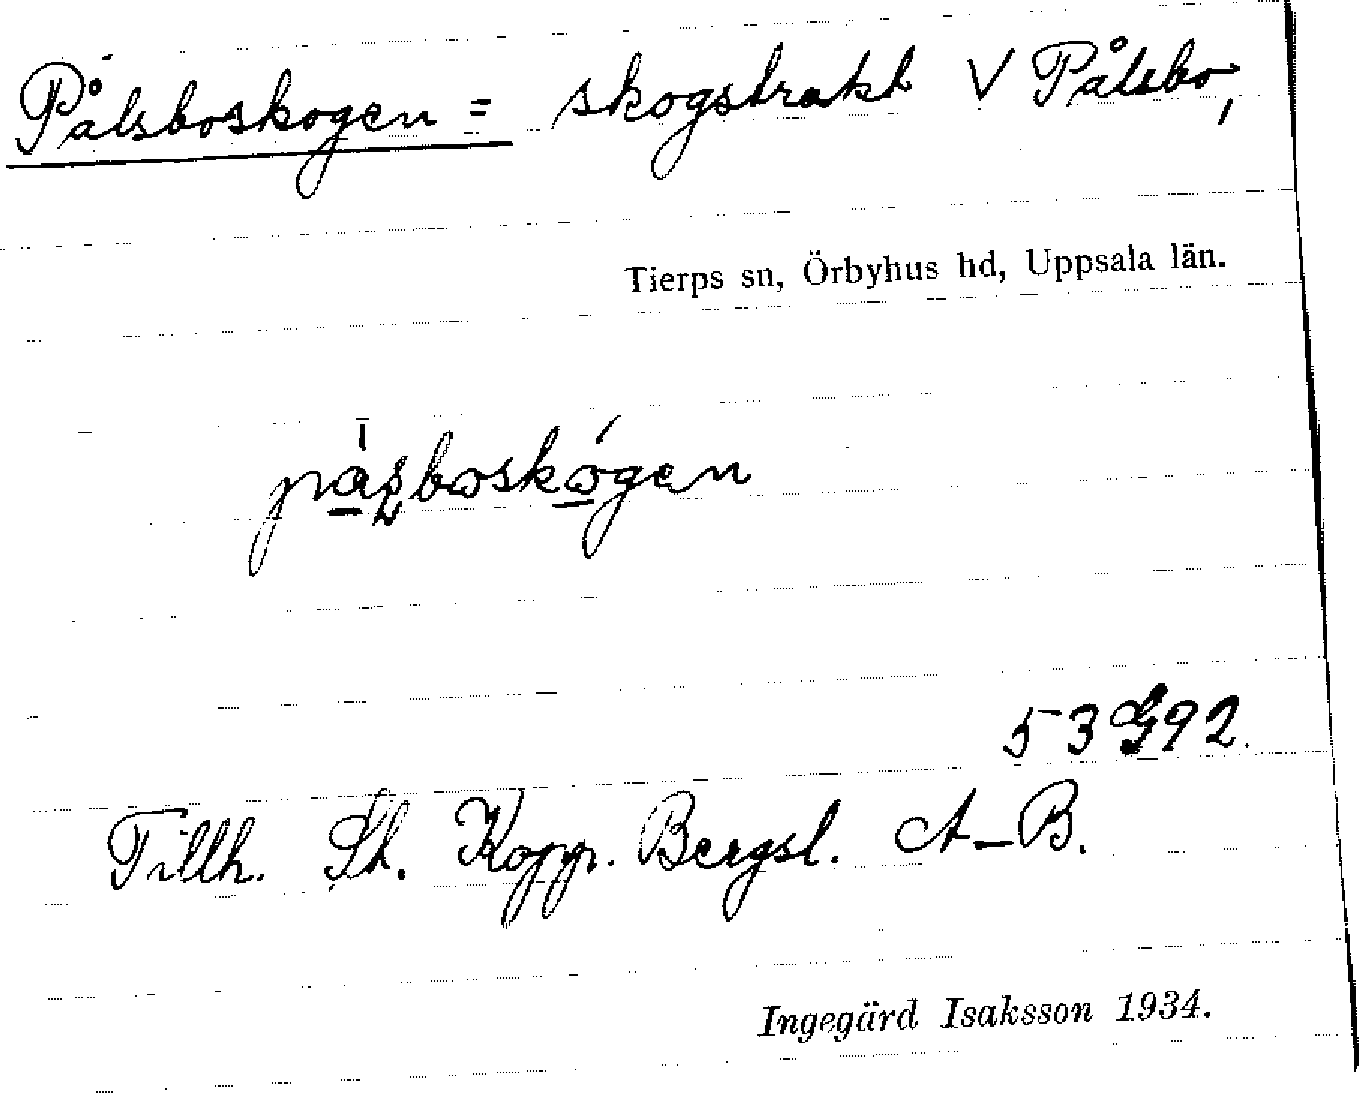 Pålsboskogen = skogstrakt V Pålsbo,
Tierps sn, Örbyhus hd, Uppsala län.
53 G92.
Tillh. St. Kopp. Bergsl. A-B.
Ingegärd Isaksson 1934.